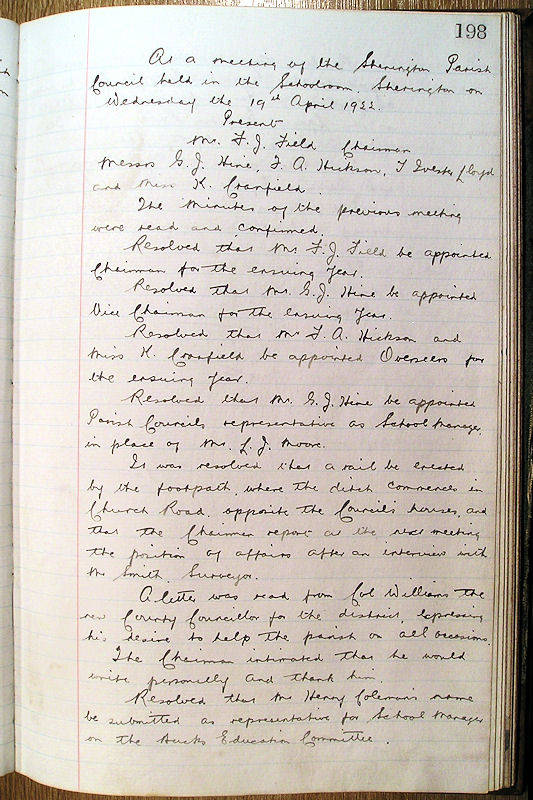 198
At a meeting of the Sherington Parish
Council held in the Schoolroom, Sherington on
Wednesday the 19th April 1922.
Present
Mr. F. J. Field Chairman
Messrs G. J. Hine, F. A. Hickson, J Ivester Lloyd
and Miss K. Cranfield.
The Minutes of the previous meeting
were read and confirmed.
Resolved that Mr. F. J. Field be appointed
Chairman for the ensuing Year.
Resolved that Mr. G. J. Hine be appointed
Vice Chairman for the ensuing Year.
Resolved that Mr F. A. Hickson and
Miss K. Cranfield be appointed Overseers for
the ensuing Year.
Resolved that Mr. G. J. Hine be appointed
Parish Councils representative as School Manager
in place of Mr. L. J. Moore.
It was resolved that a rail be erected
by the footpath, where the ditch commences in
Church Road, opposite the Councils houses, and
that the Chairman report at the next meeting
the position of affairs after an interview with
Mr Smith, Surveyor.
A letter was read from Col Williams the
new County Councillor for the district, expressing
his desire to help the parish on all occasions.
The Chairman intimated that he would
write personally and thank him.
Resolved that Mr Henry Coleman's name
be submitted as representative for School Manager
on the Bucks Education Committee.